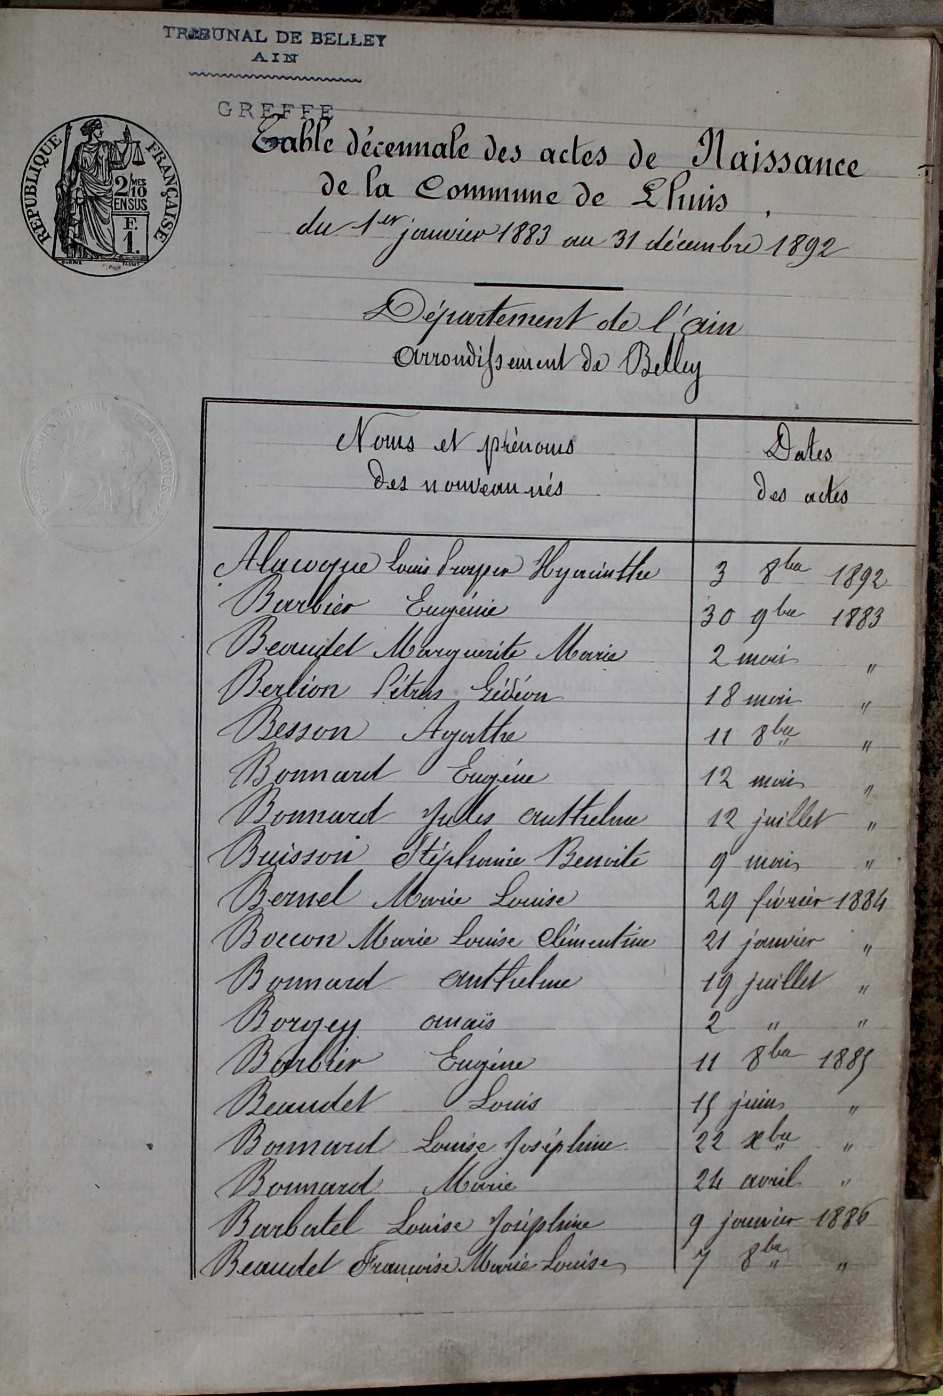 TRIBUNAL DE BELLEY
AIN
GREFFE
RÉPUBLIQUE FRANÇAISE
2/10 MES
EN SUS
F.
1.
Table décennale des actes de Naissance
de la Commune de Lhuis
du 1er janvier 1883 au 31 décembre 1892
Département de l'ain
arrondissement de Belley
Noms et prénoms des nouveau nés Dates des actes
Alacoque Louis Prosper Hyacinthe 3 8bre 1892
Barbier Eugénie 30 9bre 1883
Beaudet Marguerite Marie 2 mai "
Berlion Pétrus Gédéon 18 mai "
Besson Agathe 11 8bre "
Bonnard Eugéne 12 mai "
Bonnard Jules anthelme 12 juillet "
Buisson Stéphanie Benoite 9 mai "
Bernel Marie Louise 29 février 1884
Boccon Marie Louise Clémentine 21 janvier "
Bonnard anthelme 19 juillet "
Borgey anaïs 2 " "
Barbier Eugéne 11 8bre 1885
Beaudet Louis 15 juin "
Bonnard Louise Joséphine 22 xbre "
Bonnard Marie 24 avril "
Barbatel Louise Joséphine 9 janvier 1886
Beaudet Françoise Marie Louise 7 8bre "